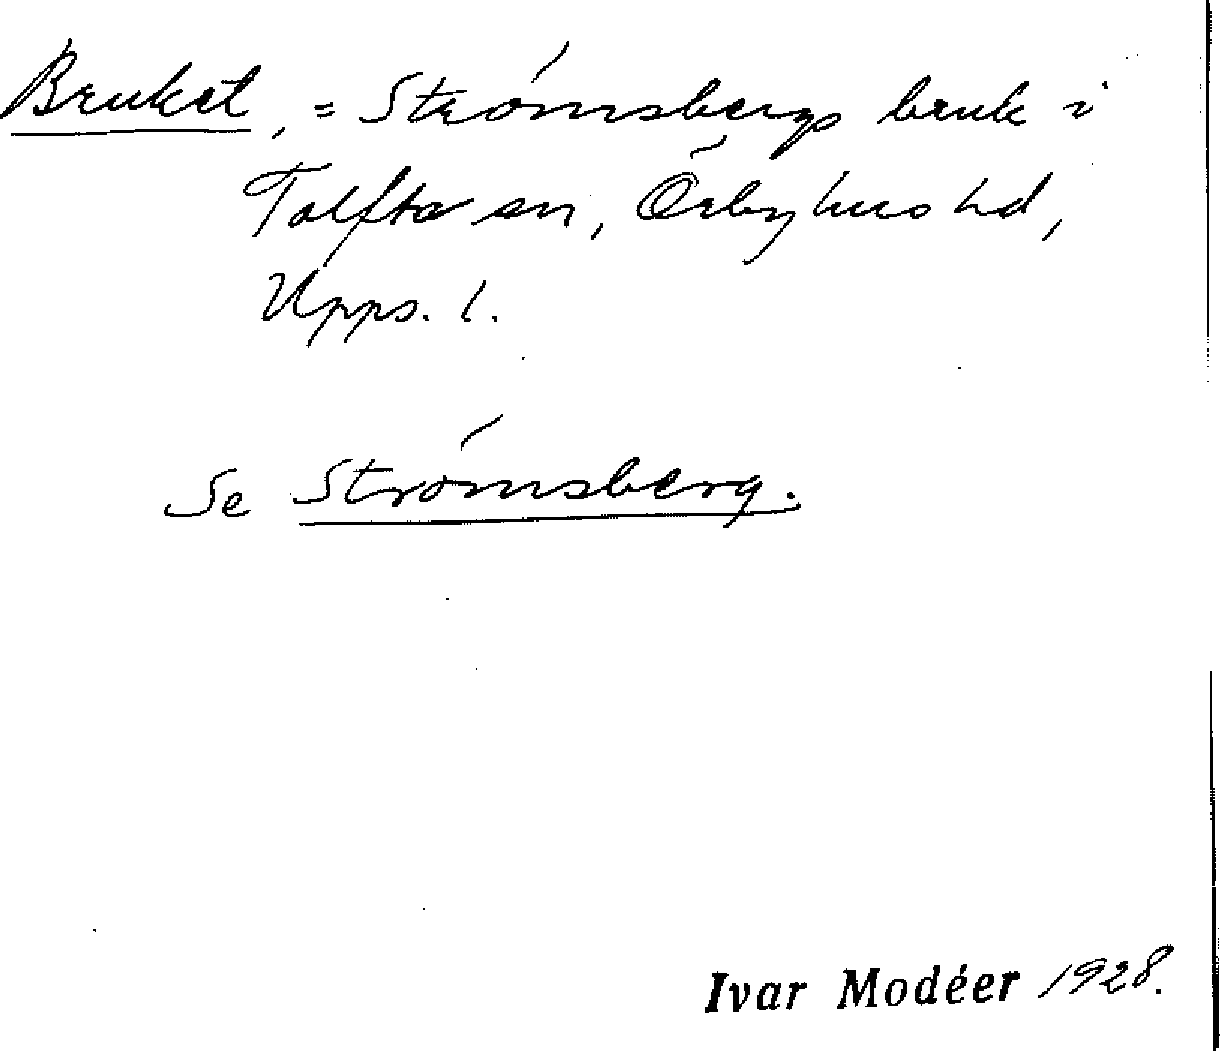 Bruket, = Strömsbergs bruk i
Tolfta sn, Örbyhus hd,
Upps. l.
Se Strömsberg.
Ivar Modéer 1928.